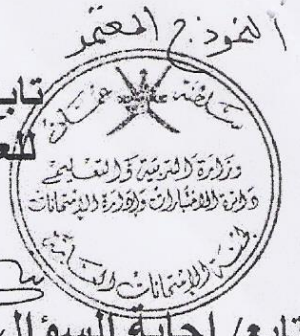 النموذج المعتمد
تاب
للع
سلطنة عمان
وزارة التربية والتعليم
دائرة الامتبارات وإدارة الإمتحانات
لجنة الإمتحانات
تابع/ إجابة السؤال